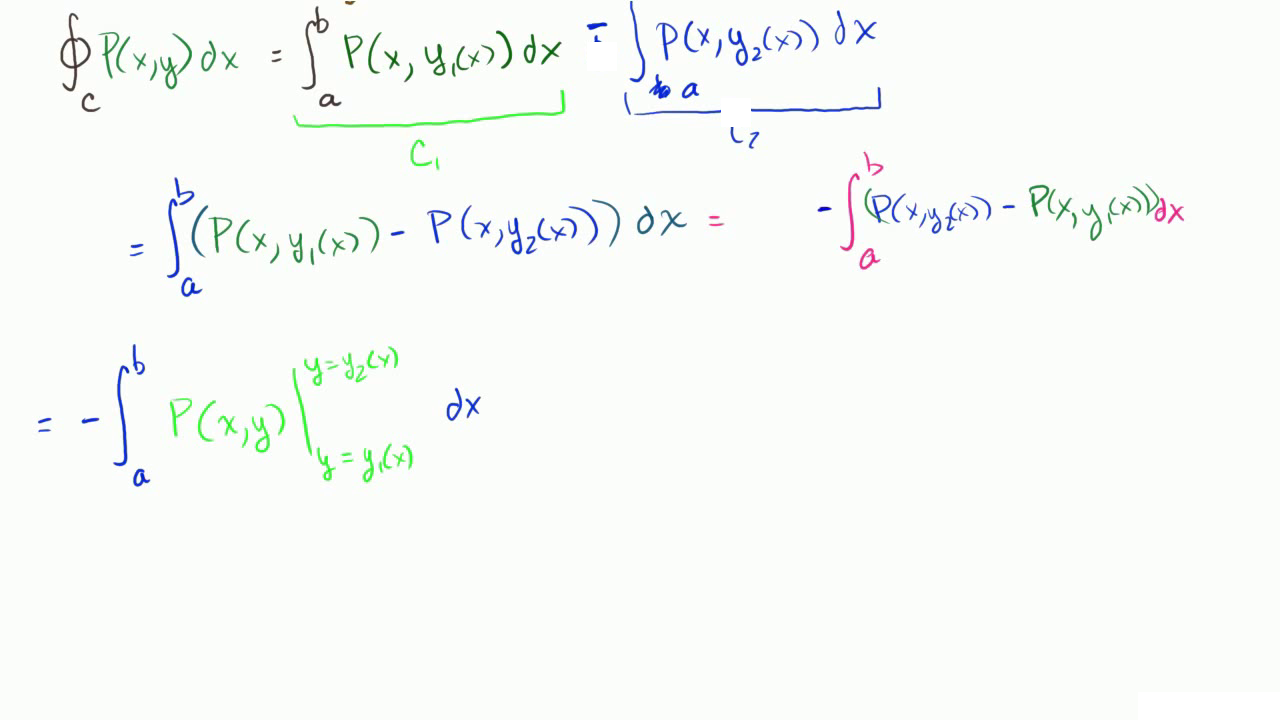 ∮_C P(x,y)dx = ∫_a^b P(x, y₁(x))dx - ∫_a P(x,y₂(x)) dx
C₁ C₂
= ∫_a^b (P(x, y₁(x)) - P(x,y₂(x))) dx = - ∫_a^b (P(x,y₂(x)) - P(x,y₁(x)))dx
= - ∫_a^b P(x,y) |_{y=y₁(x)}^{y=y₂(x)} dx